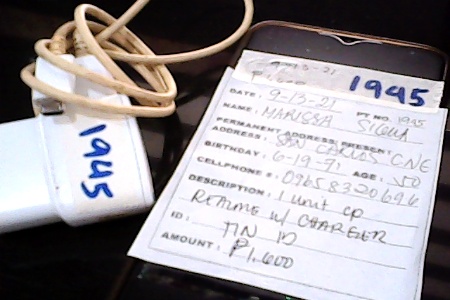 1945
₱1,600
1945
DATE: 9-13-21 PT NO. 1945
NAME: MARISSA
PERMANENT ADDRESS/PRESENT
ADDRESS: SAN CARLOS CNE
BIRTHDAY: 6-19-71 AGE: 50
CELLPHONE #: 09658320696
DESCRIPTION: 1 unit cp
REALME w/ CHARGER
ID: TIN ID
AMOUNT: ₱1,600